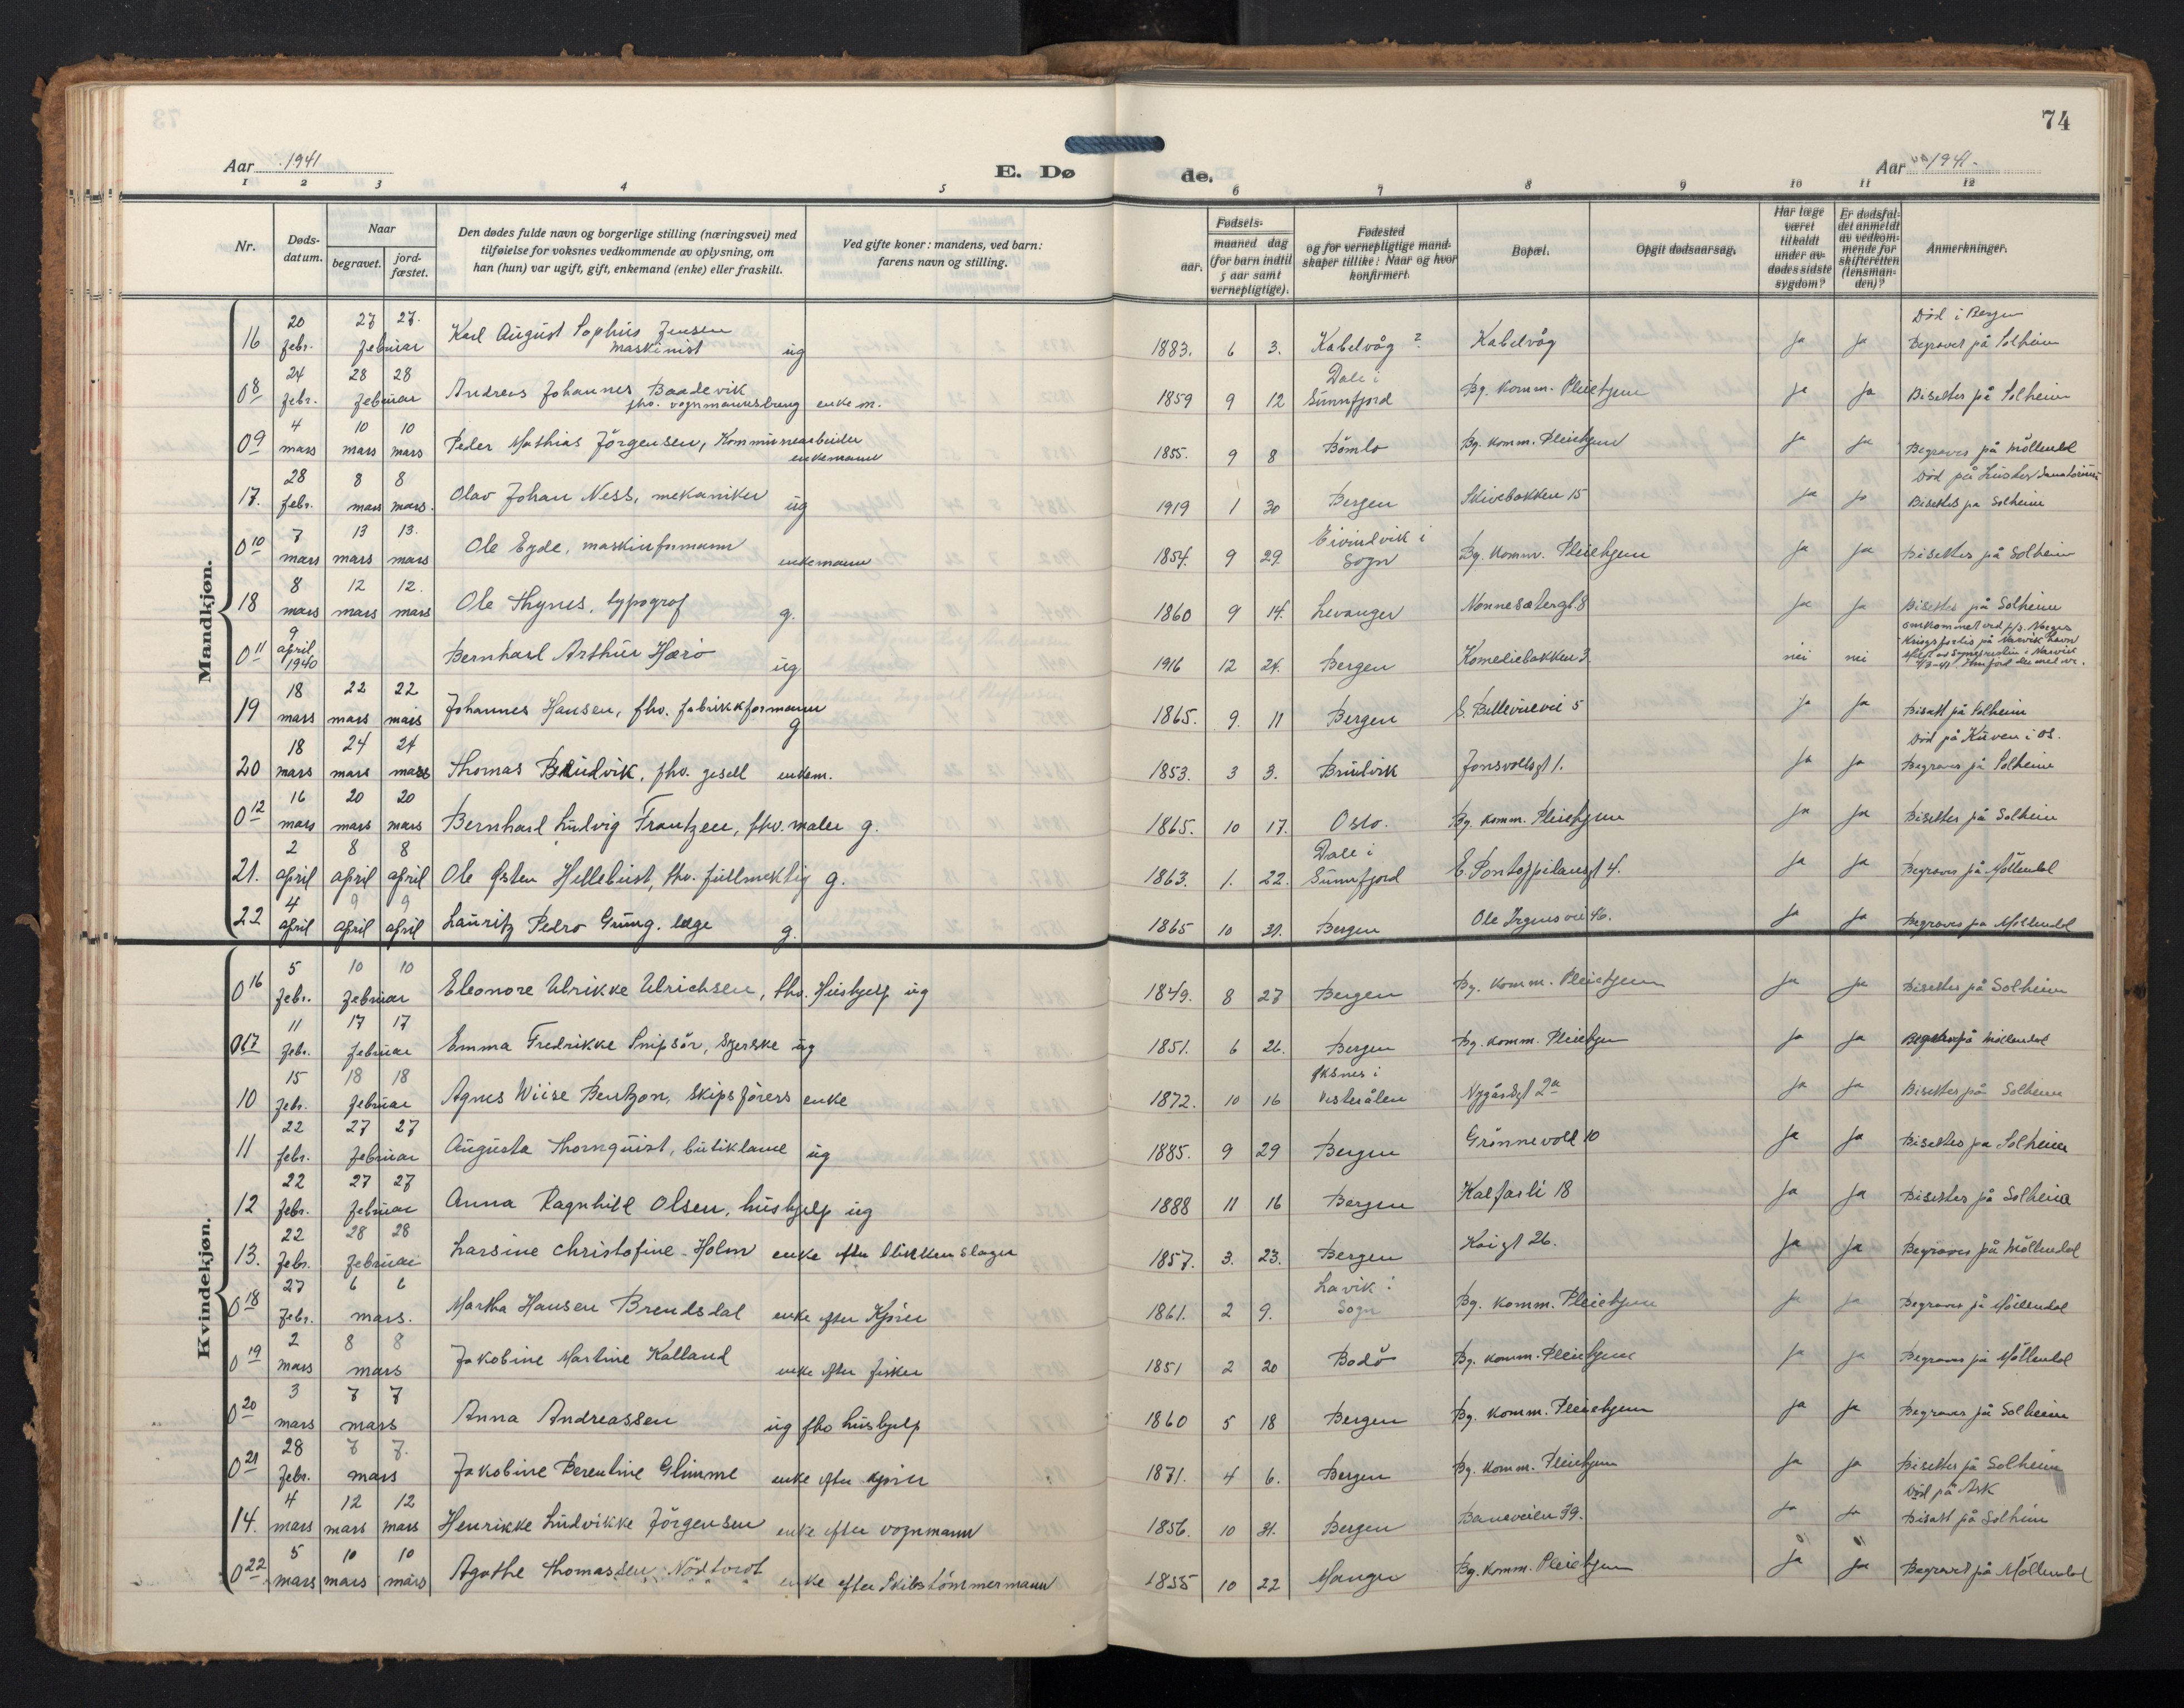 74
Aar 1941
E. Dø de.
Aar 1941.
1 2 3 4 5 6 7 8 9 10 11 12
Nr.
Døds-datum.
Naar
begravet.
jord-fæstet.
Den dødes fulde navn og borgerlige stilling (næringsvei) med
tilføielse for voksnes vedkommende av oplysning, om
han (hun) var ugift, gift, enkemand (enke) eller fraskilt.
Ved gifte koner: mandens, ved barn:
farens navn og stilling.
Fødsels-
aar.
maaned dag
(for barn indtil
5 aar samt
vernepligtige).
Fødested
og for vernepligtige mand-
skaper tillike: Naar og hvor
konfirmert.
Bopæl.
Opgit dødsaarsag.
Har læge
været
tilkaldt
under av-
dødes sidste
sygdom?
Er dødsfal-
det anmeldt
av vedkom-
mende for
skifteretten
(lensman-
den)?
Anmerkninger.
Mandkjøn.
16 20 febr. 27 27. februar Karl August Sophus Jensen maskinist ug 1883. 6 3. Kabelvåg ? Kabelvåg ja ja Død i Bergen Begravet på Solheim
0 8 24 febr. 28 28 februar Andreas Johannes Baadevik fhv. vognmannsdreng enkem. 1859 9 12 Dale i Sunnfjord Bg. Komm. Pleiehjem ja ja Bisettes på Solheim
0 9 4 mars 10 mars 10 mars Peder Mathias Jörgensen, Kommunearbeider enkemann 1855. 9 8 Bömlo Bg. komm. Pleiehjem ja ja Begraves på Möllendal
17. 28 febr. 8 mars 8 mars. Olav Johan Ness, mekaniker ug 1919 1 30 Bergen Skivebakken 15 ja ja Död på Luster Sanatorium Bisettes på Solheim
0 10 7 mars 13 mars 13. mars Ole Eyde, maskinformann enkemann 1854. 9 29. Eivindvik i Sogn Bg. Komm. Pleiehjem ja ja Bisettes på Solheim
18 8 mars 12 mars 12. mars Ole Thynes, typograf g. 1860 9 14. Levanger Nonnesætergt. 8 ja ja Bisettes på Solheim
0 11 9 april 1940 Bernhard Arthur Hærö ug 1916 12 24. Bergen Komediebakken 3 nei nei omkommet ved p/s. Norges Krigsforlis på Narvik havn
19 18 mars 22 mars 22 mars Johannes Hansen, fhv. fabrikkformann g 1865. 9. 11 Bergen E. Bellevuevei 5 ja ja Bisatt på Solheim
20 18 mars 24 mars 24 mars Thomas Bruvik, fhv. gesell enkem. 1853. 3 3. Bruvik Jonsvollsgt 1. ja ja Död på Kuven i Os. Begraves på Solheim
0 12 16 mars 20 mars 20 mars Bernhard Ludvig Frantzen, fhv. maler g. 1865. 10 17. Oslo. Bg. komm. Pleiehjem ja ja Bisettes på Solheim
21. 2 april 8 april 8 april Ole Østen Hellebust, fhv. fullmektig g. 1863. 1. 22. Dale i Sunnfjord E. Pontoppidansgt 4. ja ja Begraves på Möllendal
22 4 april 9 april 9 april Lauritz Pedro Grung. læge g. 1865 10 31. Bergen Ole Irgensvei 46. ja ja Begraves på Möllendal
Kvindekjøn.
0 16 5 febr. 10 10 februar Eleonore Ulrikke Ulrichsen, fhv. Husbjelp ug 1849. 8 27 Bergen Bg. komm. Pleiehjem ja ja Bisettes på Solheim
0 17 11 febr. 17 17 februar Emma Fredrikke Snipsör, syerske ug 1851. 6 26. Bergen Bg. komm. Pleiehjem ja ja på Möllendal
10 15 febr. 18 18 februar Agnes Wiise Bentzon, Skipsförers enke 1872. 10 16 Øksnes i Vesterålen Nygårdsgt 2a ja ja Bisettes på Solheim
11 22 febr. 27 27 februar Augusta Thornquist, butikdame ug 1885. 9 29 Bergen Grönnevold 10 ja ja Bisettes på Solheim
12 22 febr. 27 27 februar Anna Ragnhild Olsen, husbjelp ug 1888 11 16 Bergen Kalfarli 18 ja ja Bisettes på Solheim
13. 22 febr. 28 28 februar Larsine Christofine Holm enke efter blikkenslager 1857. 3. 23. Bergen Kaigt 26. ja ja Begraves på Möllendal
0 18 27 febr. 6 6 mars. Martha Hansen Brendsdal enke efter Kjører 1861. 2 9. Lavik i Sogn Bg. komm. Pleiehjem ja ja Begraves på Möllendal
0 19 2 mars 8 8 mars Jakobine Martine Kalland enke efter fisker 1851 2 20 Bodö Bg. komm. Pleiehjem ja ja Begraves på Möllendal
0 20 3 mars 7 7 mars Anna Andreassen ug fhv husbjelp 1860 5 18 Bergen Bg. komm. Pleiehjem ja ja Begraves på Solheim
0 21 28 febr. 7 7. mars Jakobine Berentine Glimme enke efter kjører 1871. 4 6. Bergen Bg. komm. Pleiehjem ja ja Bisettes på Solheim
14. 4 mars 12 mars 12 mars Henrikke Ludvikke Jörgensen enke efter vognmann 1856. 10 31. Bergen Baneveien 39. ja ja Död på Ask Bisatt på Solheim
0 22 5 mars 10 mars 10 mars Agathe Thomassen Nödtvedt enke efter Skibstömmermann 1855 10 22 Manger Bg. komm. Pleiehjem ja ja Begravet på Möllendal